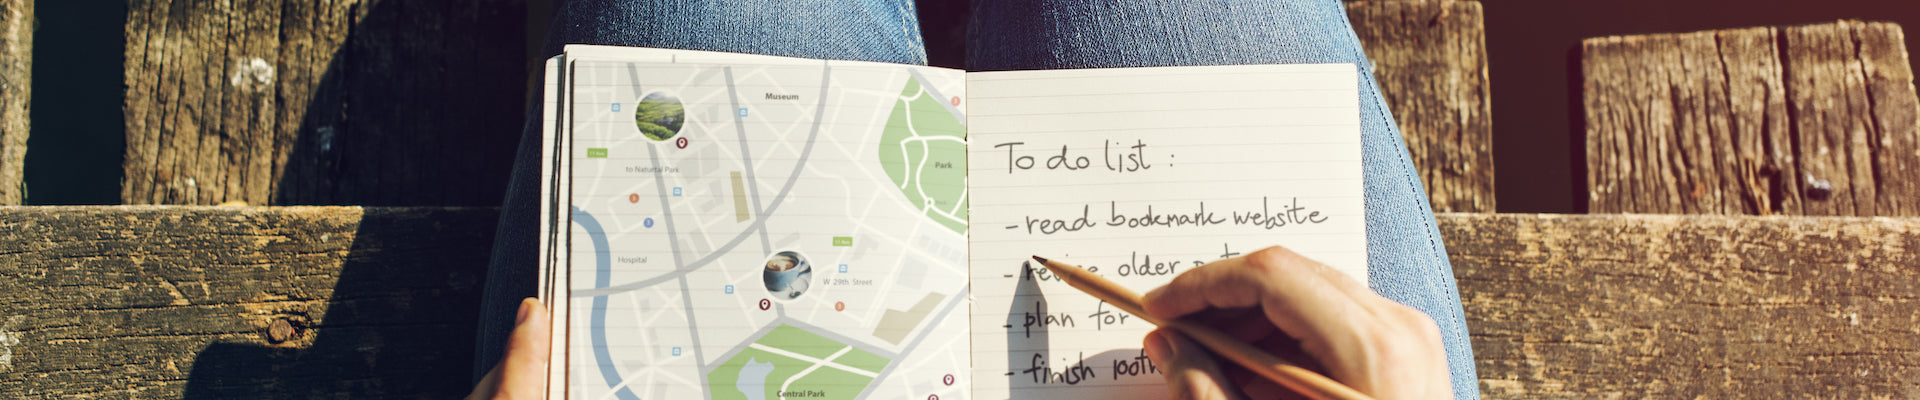 Museum
Park
to Naturtal Park
Hospital
W 29th Street
Central Park
To do list :
- read bookmark website
- revise older
- plan for
- finish 100th